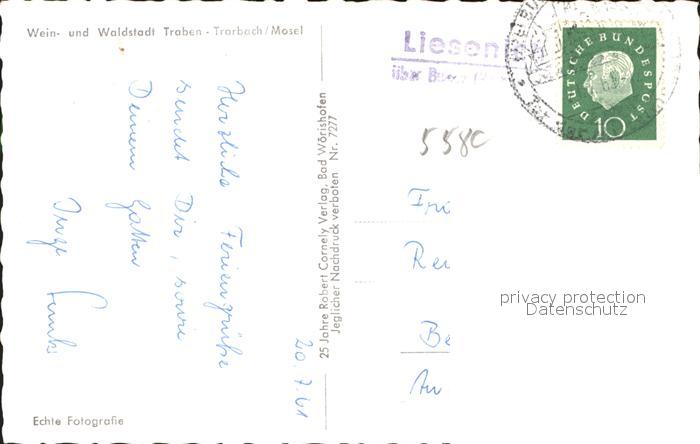 Wein- und Waldstadt Traben - Trarbach/Mosel
Herzliche Feriengrüße
sendet Dir, sowie
Deinem Gatten
Inge
20.7.61
Echte Fotografie
25 Jahre Robert Cornely Verlag, Bad Wörishofen
Jeglicher Nachdruck verboten Nr. 7277
Liesen
über
DEUTSCHE BUNDESPOST
10
5580
Re
Be
privacy protection
Datenschutz